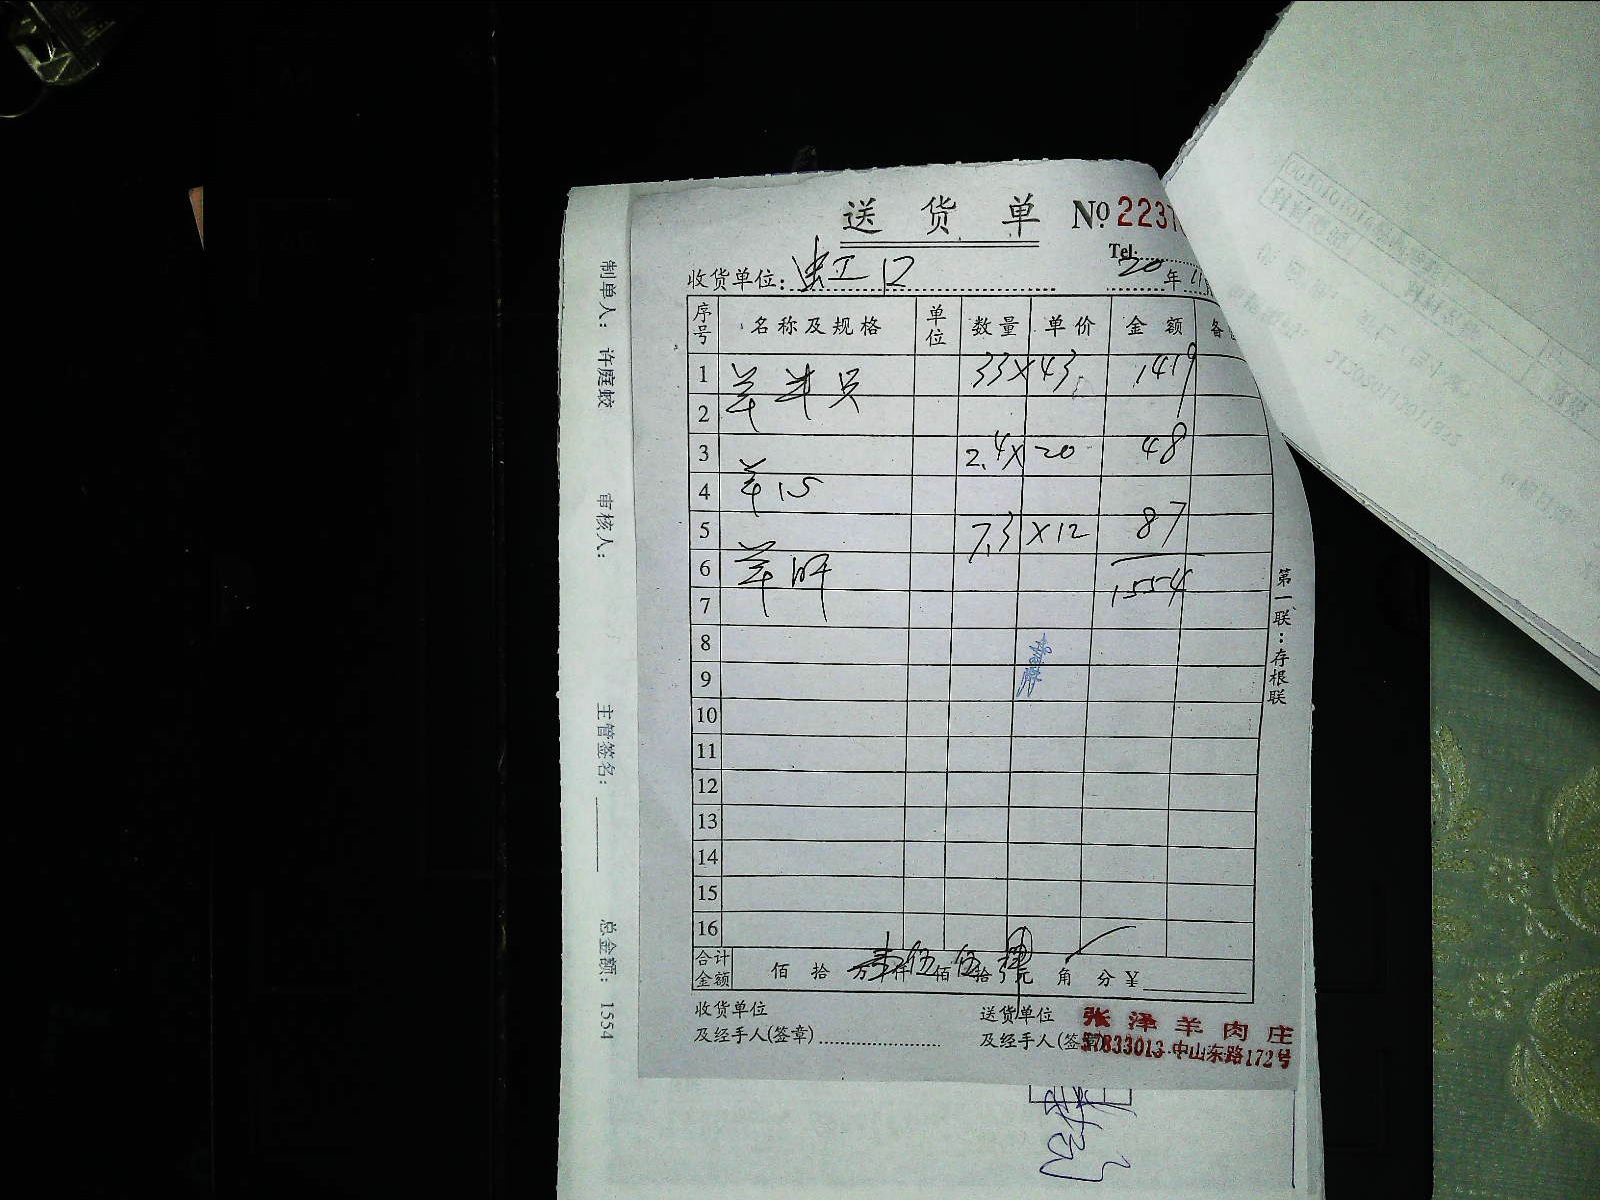 送货单 № 2237
Tel:
收货单位: 虹口 20 年 11
序号 名称及规格 单位 数量 单价 金额 备
1 羊半只 33 × 43 1419
2
3 2.4 × 20 48
4 羊心
5 7.3 × 12 87
6 羊肝 1554
7
8
9
10
11
12
13
14
15
16
合计金额 佰 拾 万 壹仟 伍佰 伍拾 肆元 角 分 ¥
收货单位 送货单位 张泽羊肉庄
及经手人(签章) 及经手人(签章) 57833013 中山东路172号
第一联:存根联
制单人: 许庭蛟 审核人: 主管签名: 总金额: 1554